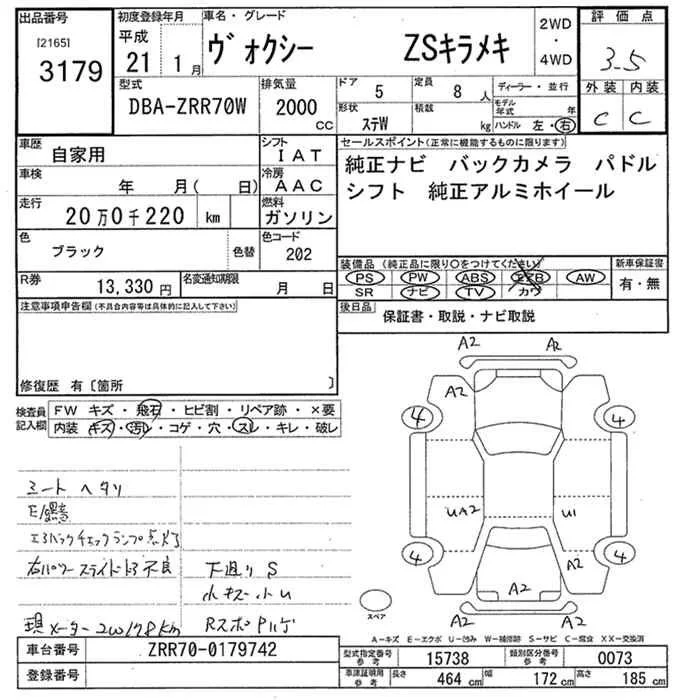 出品番号
[2165]
3179
初度登録年月
平成
21 年 1 月
車名・グレード
ヴォクシー ZSキラメキ
2WD
・
4WD
評価点
3.5
外装 内装
C C
型式
DBA-ZRR70W
排気量
2000 CC
ドア 5
定員 8 人
ディーラー・並行
形状 ステW
積数 kg
モデル年式 年
ハンドル 左・右
車歴 自家用
シフト IAT
車検 年 月( 日)
冷房 AAC
走行 20万0千220 km
燃料 ガソリン
色 ブラック 色替
色コード 202
R券 13,330円
名変通知期限 月 日
セールスポイント(正常に機能するものに限ります)
純正ナビ バックカメラ パドル
シフト 純正アルミホイール
装備品(純正品に限り○をつけてください)
PS PW ABS AW
SR ナビ TV カワ
新車保証書
有・無
後日品 保証書・取説・ナビ取説
注意事項申告欄(不具合内容等は具体的に記入して下さい)
修復歴 有〔箇所 〕
検査員記入欄
FW キズ・飛石・ヒビ割・リペア跡・×要
内装 キズ・汚レ・コゲ・穴・スレ・キレ・破レ
シートヘタリ
E/異音
エアバックチェックランプ点灯
右パワースライドドア不良
下廻りS
小キズ・小U
現メーター2W178km
A2 A2
A2
4 4
UA2 U1
4 4
A2
A2 A2
スペア
A-キズ E-エクボ U-凹み W-補修跡 S-サビ C-腐食 XX-交換済
車台番号 ZRR70-0179742
登録番号
型式指定番号 参考 15738
類別区分番号 参考 0073
車庫証明用 参考
長さ 464 cm 幅 172 cm 高さ 185 cm